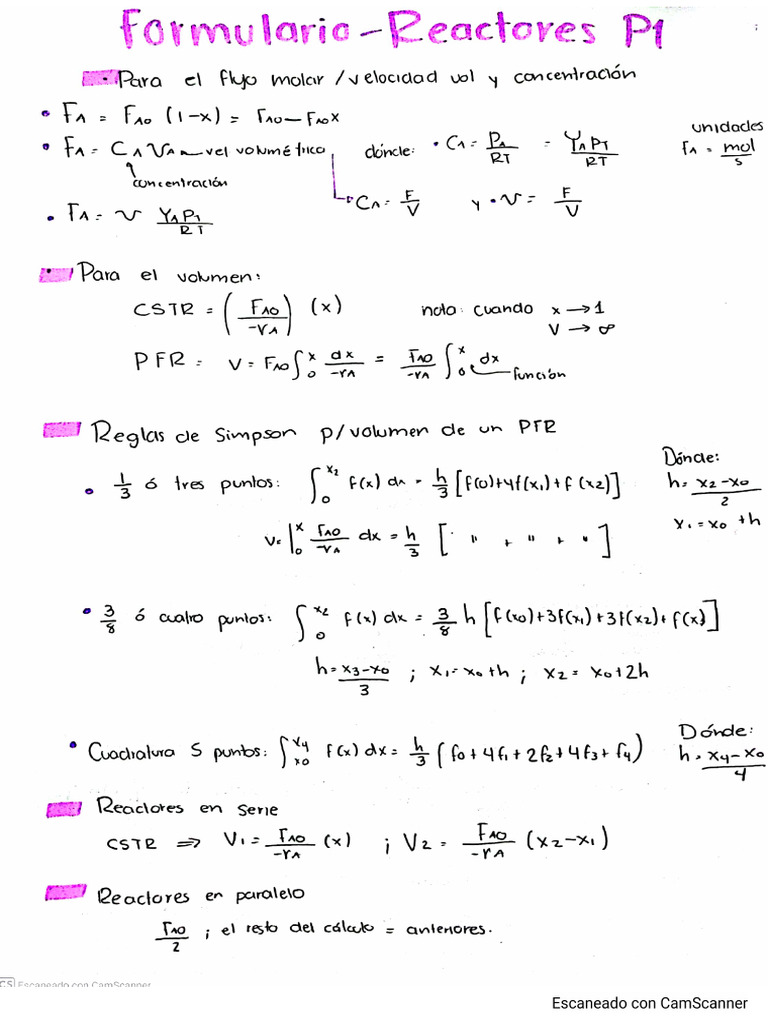 Formulario - Reactores P1
• Para el flujo molar / velocidad vol y concentración
• FA = FAO (1-x) = FAO - FAOX
unidades
FA = mol/s
• FA = CA VA → vel volumétrica
concentración
dónde: • CA = PA/RT = YAPT/RT
→ CA = F/V y • V = F/V
• FA = V YAPT/RT
• Para el volumen:
CSTR = (FAO/-rA) (x) nota: cuando x → 1
V → ∞
PFR = V = FAO ∫₀ˣ dx/-rA = FAO/-rA ∫₀ˣ dx
función
Reglas de Simpson p/volumen de un PFR
Dónde:
• 1/3 ó tres puntos: ∫₀ˣ² f(x) dx = h/3 [f(0)+4f(x1)+f(x2)]
h = x2-x0/2
x1 = x0 + h
V = |₀ˣ FAO/-rA dx = h/3 [ " + " + " ]
• 3/8 ó cuatro puntos: ∫₀ˣ² f(x) dx = 3/8 h [f(x0)+3f(x1)+3f(x2)+f(x)]
h = x3-x0/3 ; x1 = x0+h ; x2 = x0+2h
• Cuadratura 5 puntos: ∫x0 x4 f(x) dx = h/3 (f0+4f1+2f2+4f3+f4)
Dónde:
h = x4-x0/4
Reactores en serie
CSTR ⇒ V1 = FAO/-rA (x) ; V2 = FAO/-rA (x2-x1)
Reactores en paralelo
FAO/2 ; el resto del cálculo = anteriores.
CS Escaneado con CamScanner
Escaneado con CamScanner